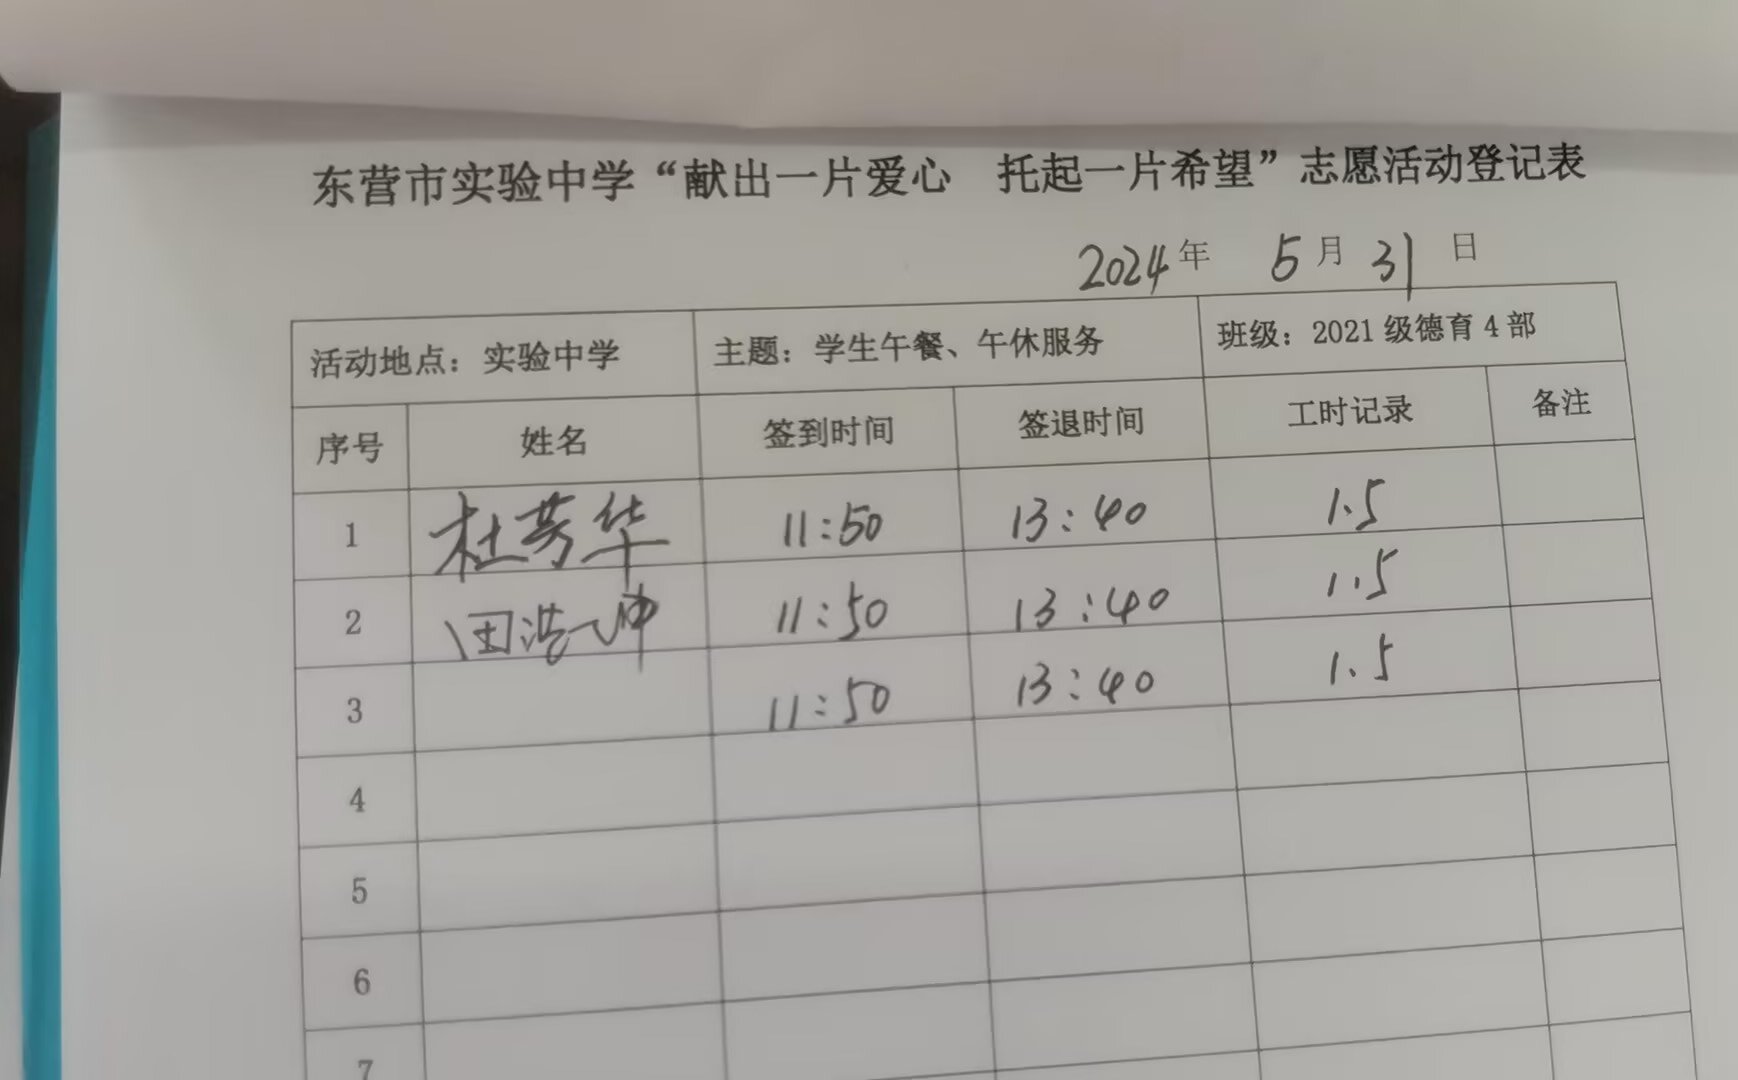 东营市实验中学“献出一片爱心 托起一片希望”志愿活动登记表
2024年 5月31日
活动地点：实验中学 主题：学生午餐、午休服务 班级：2021级德育4部
序号 姓名 签到时间 签退时间 工时记录 备注
1 杜芳华 11:50 13:40 1.5
2 田浩坤 11:50 13:40 1.5
3 11:50 13:40 1.5
4
5
6
7